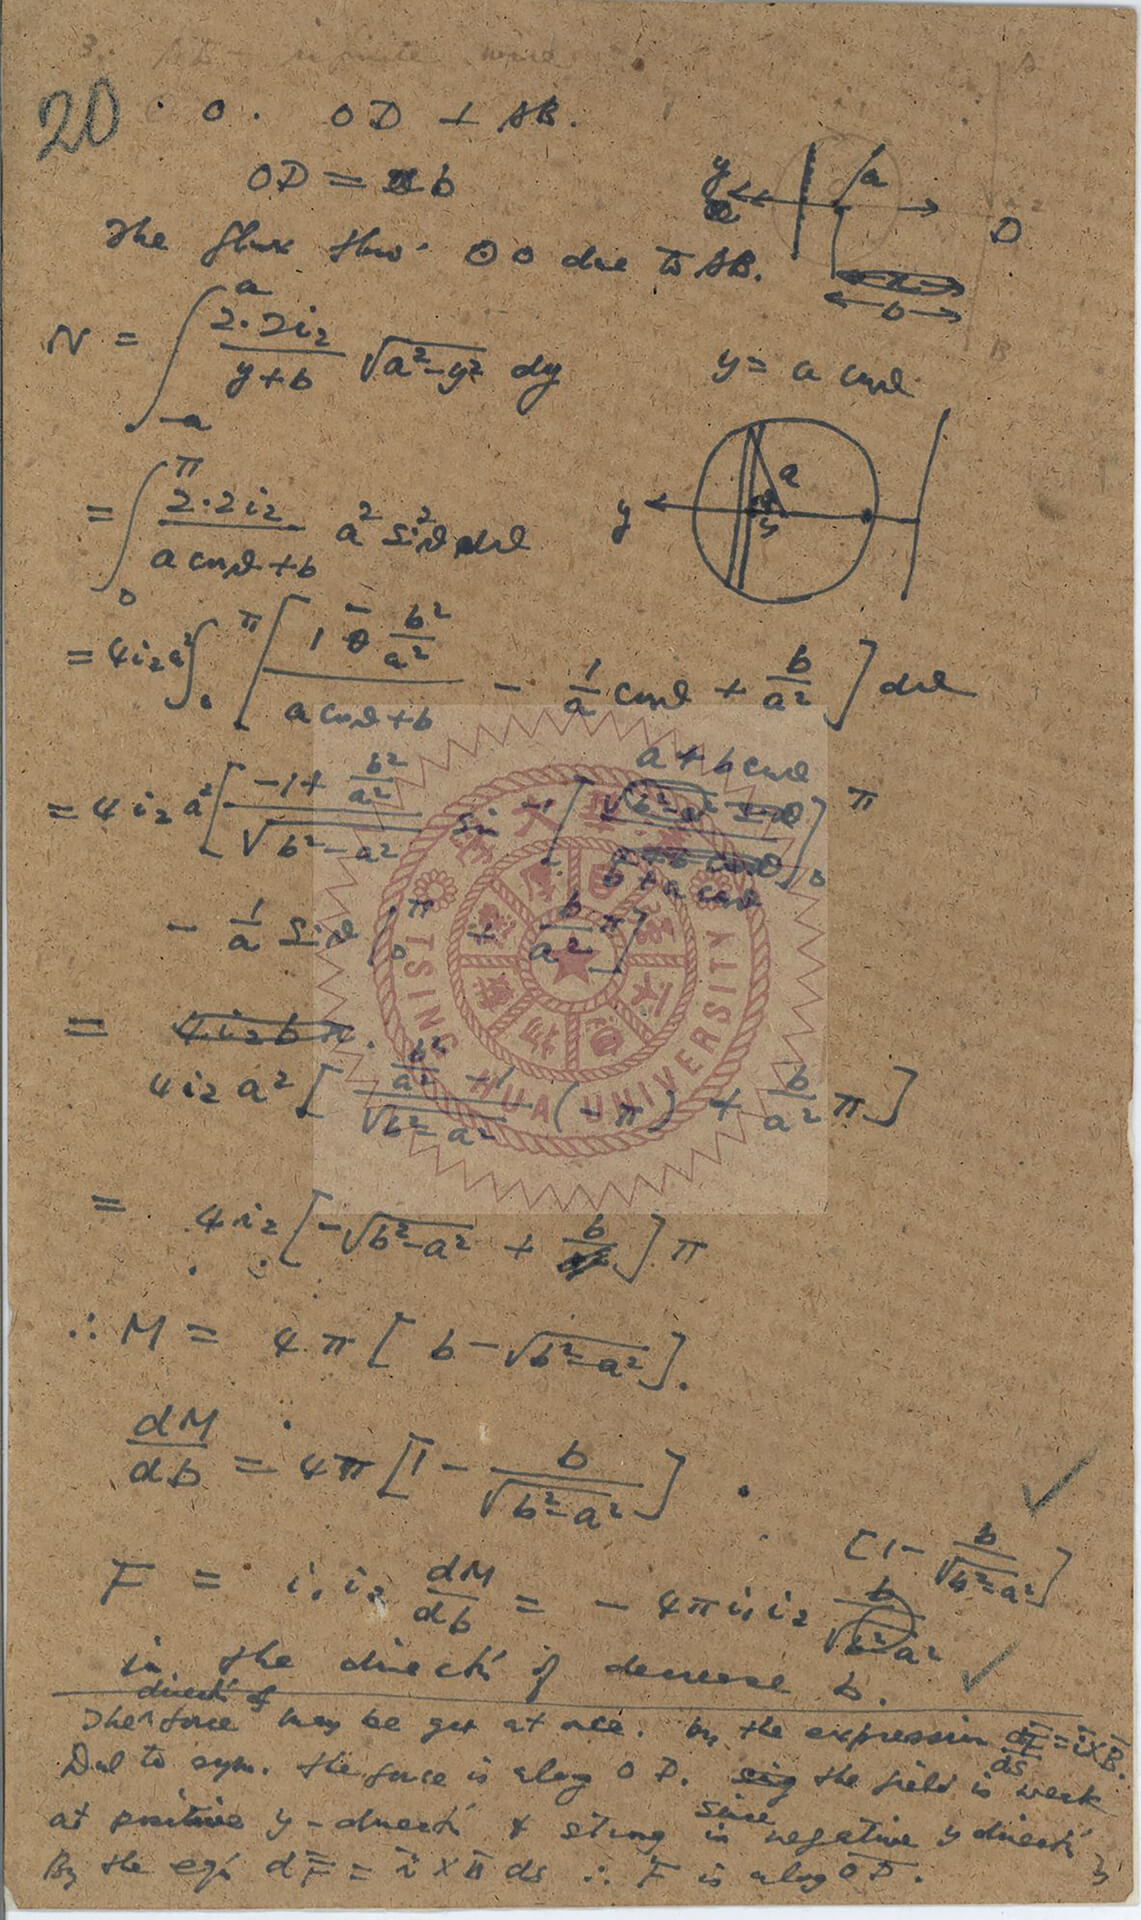 20 · O. OD ⊥ AB.
OD = b
The flux thro' O due to AB.
y a D
b
N = ∫_{-a}^{a} 2·2i₂/(y+b) √(a²-y²) dy
y = a cosθ
= ∫_0^π 2·2i₂/(a cosθ+b) a² sin²θ dθ
y a
= 4i₂a² ∫_0^π [ (1 - b²/a²)/(a cosθ+b) - 1/a cosθ + b/a² ] dθ
= 4i₂a² [ (-1 + b²/a²)/√(b²-a²) sin⁻¹ [ (a + b cosθ)/(b + a cosθ) ]_0^π
- 1/a sinθ |_0^π + b/a² π ]
= 4i₂bπ.
4i₂a² [ (b²/a² - 1)/√(b²-a²) (-π) + b/a² π ]
= 4i₂ [ -√(b²-a²) + b ] π
∴ M = 4π [ b - √(b²-a²) ].
dM/db = 4π [ 1 - b/√(b²-a²) ].
F = i₁i₂ dM/db = - 4πi₁i₂ [ 1 - b/√(b²-a²) ]
in the direct' of decrease b.
The direct' of force may be got at once. by the expression dF̄/ds = ī×B̄.
Due to sym. the force is along OD. since the field is weak
at positive y-direct' & strong in negative y direct'
By the eq'n dF̄ = ī × B̄ ds ∴ F̄ is along OD.
TSING HUA UNIVERSITY